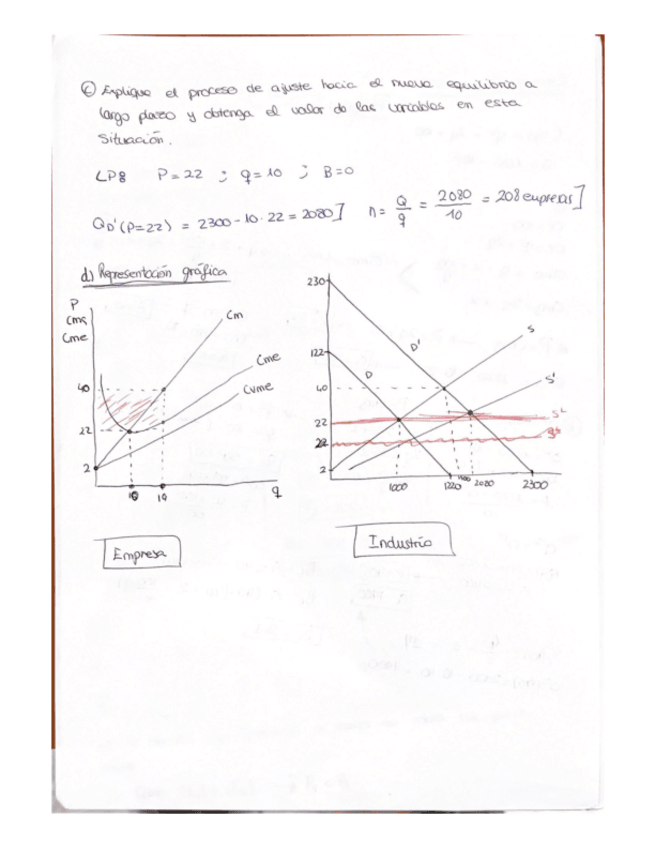 c) Explique el proceso de ajuste hacia el nuevo equilibrio a
largo plazo y obtenga el valor de las variables en esta
situación.
LP8 P=22 ; q=10 ; B=0
QD'(P=22) = 2300-10·22 = 2080] n= Q/q = 2080/10 = 208 empresas]
d) Representación gráfica
P
Cmg
Cme
Cm
Cme
CVme
40
22
2
10
19
q
Empresa
230
122
40
22
2
D
D'
S
S'
1000
1220
1900
2080
2300
Industria